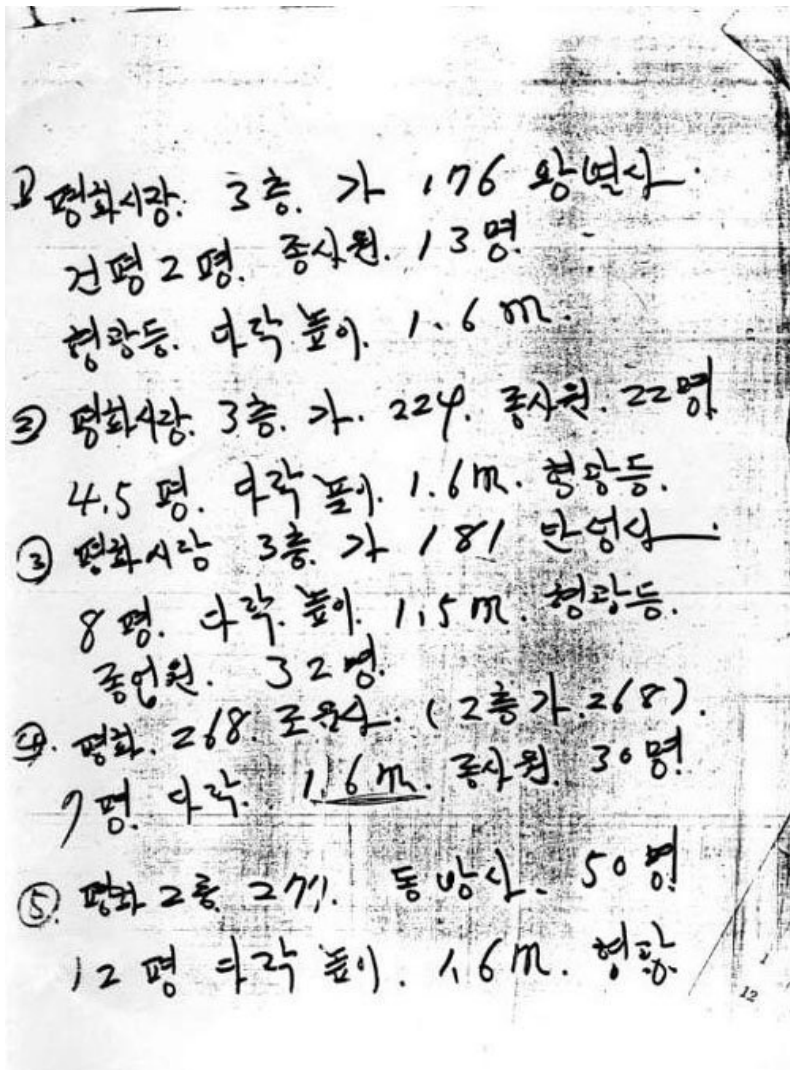 ① 평화시장. 3층. 가 176 왕별사.
건평 2평. 종사원. 13명.
형광등. 다락 높이. 1.6m.
② 평화시장. 3층. 가. 224. 종사원. 22명
4.5평. 다락 높이. 1.6m. 형광등.
③ 평화시장 3층. 가 181 한성사.
8평. 다락. 높이. 1.5m. 형광등.
종업원. 32명.
④. 평화. 268. (2층 가.268).
7평. 다락. 1.6m. 종사원. 30명.
⑤. 평화 2층. 동방사. 50명
12평 다락 높이. 1.6m. 형광.
12